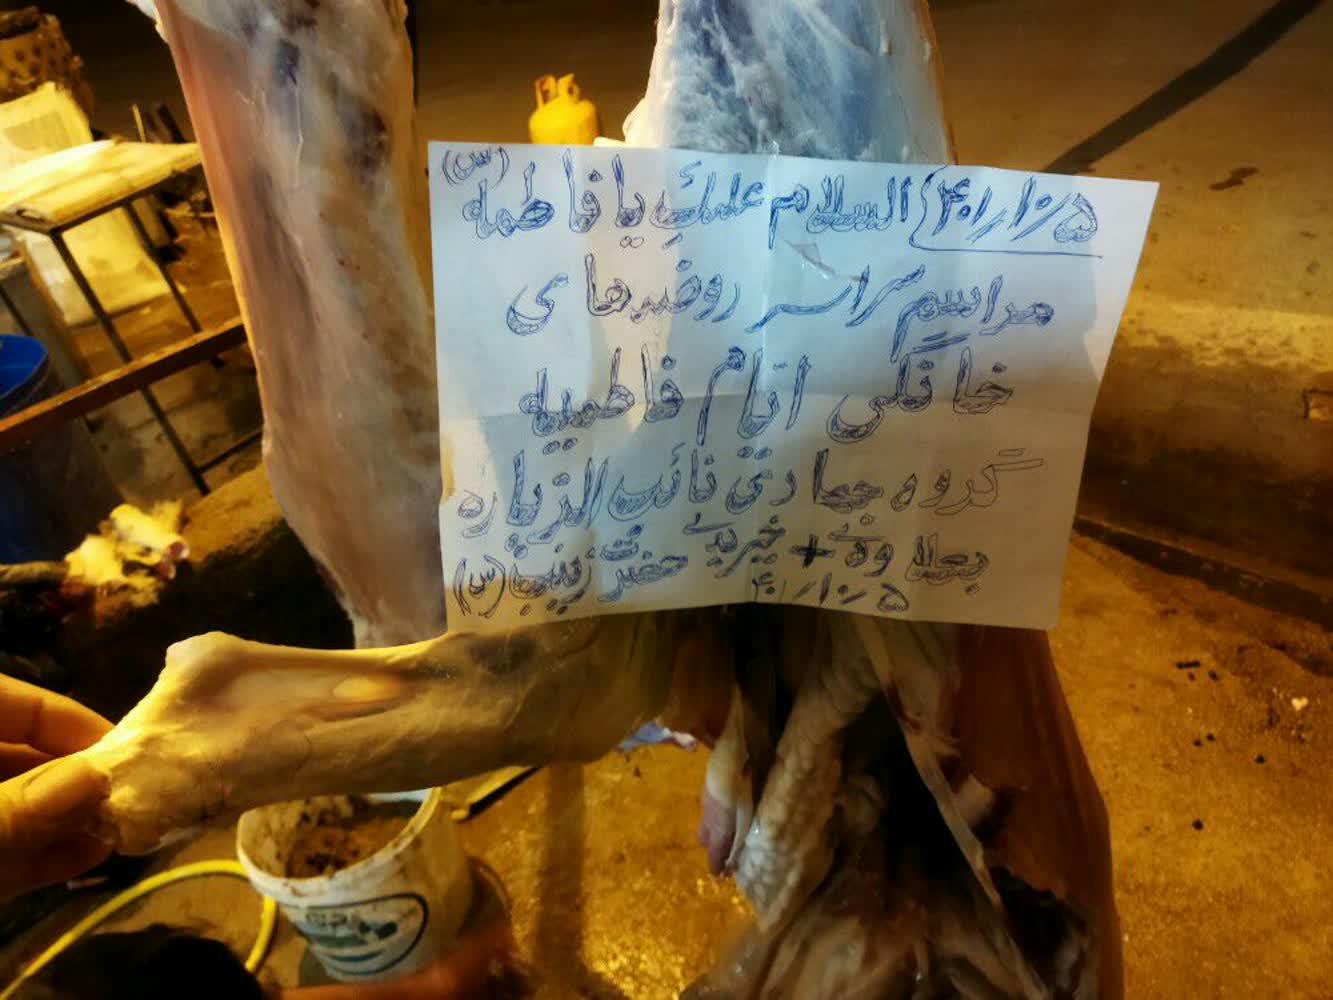 ۴۰۱/۱۰/۵ السلام علیکِ یا فاطمه (س)
مراسم سراسر روضه های
خانگی ایّام فاطمیه
گروه جهادی نائب الزیاره
بعلاوه ی + خیریه ی حضرت زینب (س)
۴۰۱/۱۰/۵